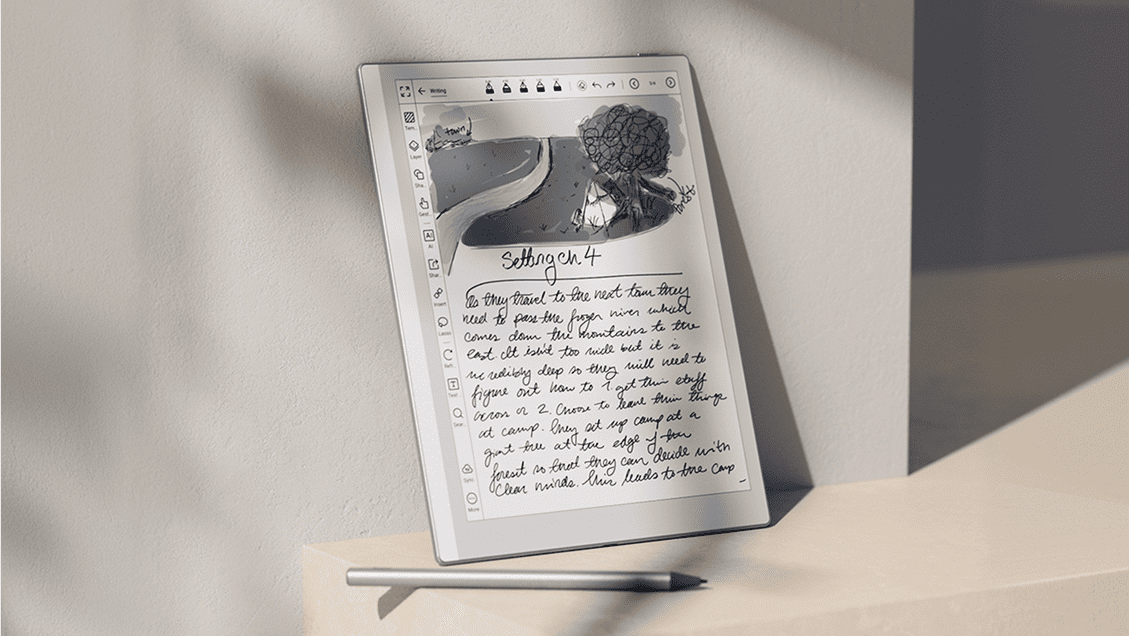 Writing
Tem...
Layer
Sha...
Gest...
AI
AI
Shar...
Insert
Lasso
Refr...
T
Text...
Sear...
Sync
More
town
forest
Setting ch. 4
As they travel to the next town they
need to pass the frozen river which
comes down the mountains to the
east. It isn't too wide but it is
incredibly deep so they will need to
figure out how to 1. get their stuff
across or 2. Choose to leave their things
at camp. They set up camp at a
giant tree at the edge of the
forest so that they can decide with
clear minds. This leads to the camp